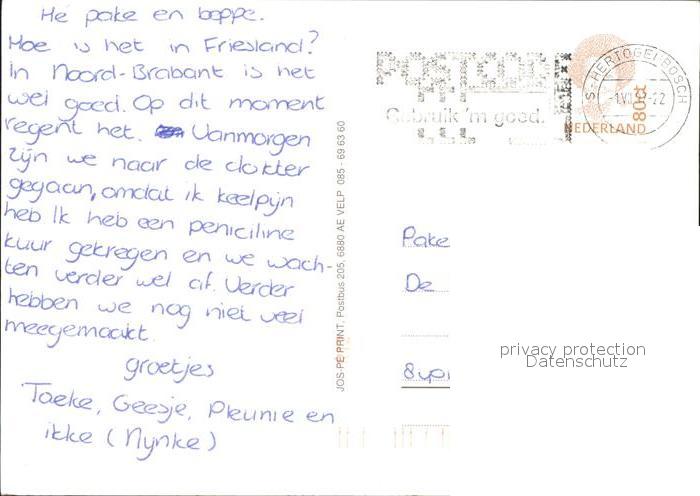 He pake en beppe.
Hoe is het in Friesland?
In Noord-Brabant is het
wel goed. Op dit moment
regent het. Vanmorgen
zijn we naar de dokter
gegaan, omdat ik keelpijn
heb Ik heb een peniciline
kuur gekregen en we wach-
ten verder wel af. Verder
hebben we nog niet veel
meegemaakt.
groetjes
Taeke, Geesje, Pleunie en
ikke (Nynke)
JOS-PÉ PRINT, Postbus 205, 6880 AE VELP 085 - 69 63 60
POSTCODE
Gebruik 'm goed.
'S-HERTOGENBOSCH
80ct
NEDERLAND
Pake
De
privacy protection
Datenschutz